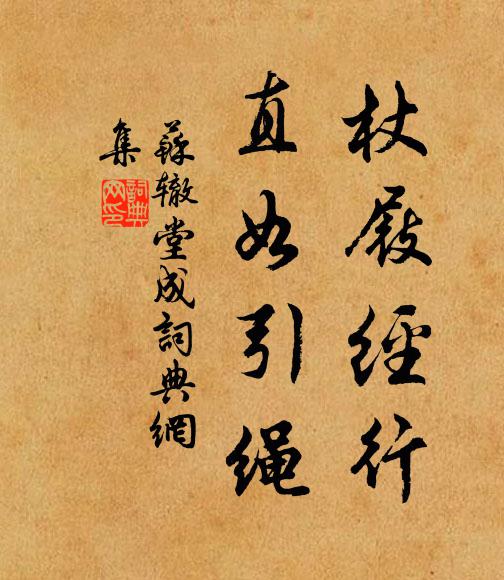 杖屐經行
直如引繩
蘇辙堂成詞典網
集
詞典
网印